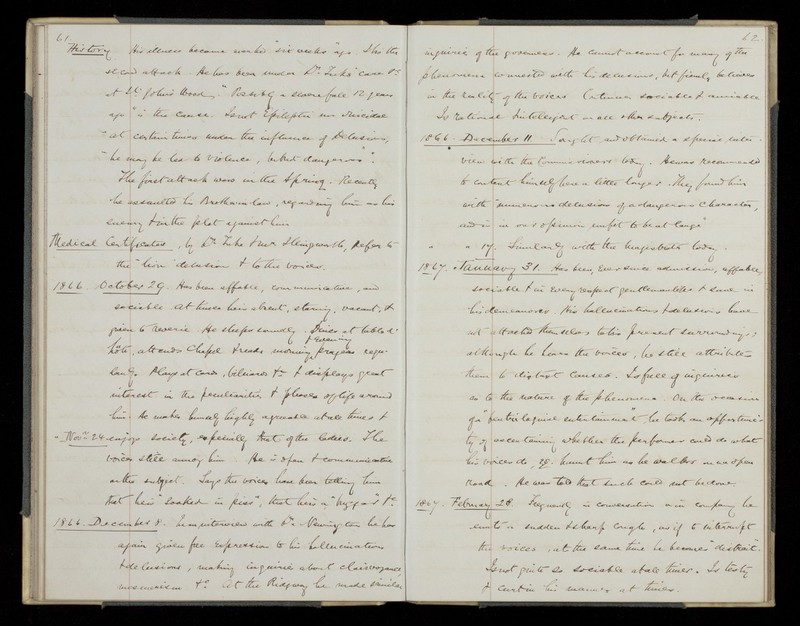 61.
History His illness became worse "six weeks" ago. It is the
second attack. He has been under Dr. Tuke's care &c
at St. John's Wood. "Possibly a severe fall 12 years
ago" is the cause. Is not Epileptic nor Suicidal
"at certain times under the influence of Delusions,
"he may be led to violence, but dangerous".
The first attack was in the Spring. Recently
he assaulted his Brother in law, regarding him as his
enemy & in the plot against him.
Medical Certificates, by Dr. Tuke & Mr. Illingworth, refer to
the "lion" delusion & to the voices.
1866. October 29. Has been affable, communicative, and
sociable. At times he is absent, staring, vacant, &
given to reverie. He sleeps soundly. Dines at table d'
hôte, attends Chapel & reads morning & evening prayers regu-
larly. Plays at cards, billiards &c. & displays great
interest in the peculiarities & phases of life around
him. He makes himself highly agreeable at all times &
- Novr. 24. enjoys society, especially that of the ladies. The
voices still annoy him. He is open & communicative
on the subject. Says the voices have been telling him
that he is "soaked in piss", that he is a "bugger" &c.
1866. December 8. In an interview with Dr. Newington he has
again given free expression to his hallucinations
& delusions, making inquiries about clairvoyance,
mesmerism &c. At the Ridgway he made similar
62
inquiries of the governess. He cannot account for many of the
phenomena connected with his delusions, but firmly believes
in the reality of the voices. Continues sociable & amiable
Is rational & intelligent on all other subjects.
1866. December 11. Sought and obtained a special inter-
view with the Commissioners today. He was recommended
to content himself here a little longer. They found him
with "numerous delusions of a dangerous character,
and is in our opinion unfit to be at large"
" " 17. Similarly with the Magistrates today.
1867. January 31. Has been, ever since admission, affable,
sociable & in every respect gentlemanlike & sane in
his demeanour. His hallucinations & delusions have
not attached themselves to his present surroundings;
although he hears the voices, he still attributes
them to distant causes. Is full of inquiries
as to the nature of the phenomena. On the occasion
of a "ventriloquial entertainment" he took an opportuni-
ty of ascertaining whether the performer could do what
his voices do, eg. haunt him as he walks on an open
road. He was told that such could not be done.
1867. February 28. Frequently in conversation or in company he
emits a sudden & sharp cough, as if to interrupt
the voices. at the same time he becomes "distrait".
Is not quite so sociable at all times. Is testy
& curt in his manner at times.